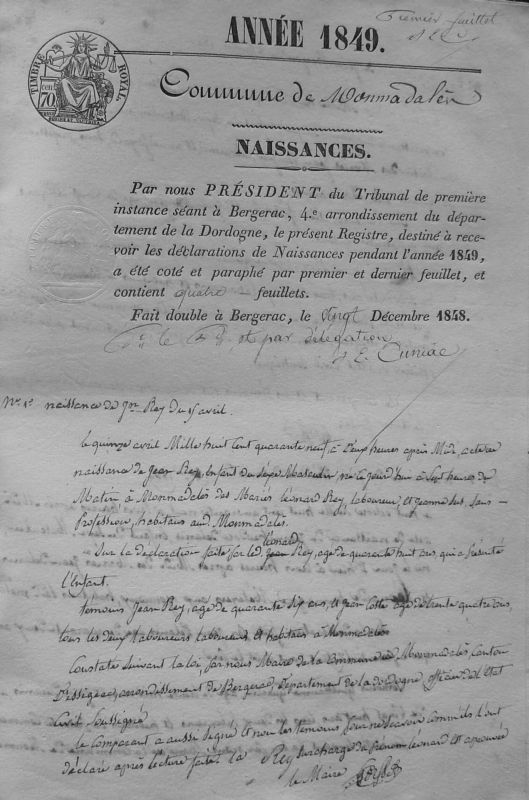 Premier feuillet
TIMBRE ROYAL
70
ANNÉE 1849.
Commune de Monmadalès
NAISSANCES.
Par nous PRÉSIDENT du Tribunal de première
instance séant à Bergerac, 4.e arrondissement du dépar-
tement de la Dordogne, le présent Registre, destiné à rece-
voir les déclarations de Naissances pendant l'année 1849,
a été coté et paraphé par premier et dernier feuillet, et
contient quatre feuillets.
Fait double à Bergerac, le vingt Décembre 1848.
Pr. le Pt. et par délégation
E. Cuniac
No. 1er naissance de Jn. Rey du 15 avril.
le quinze avril Mille huit cent quarante neuf, à deux heures après Midi, acte de
naissance de jean Rey, Enfant du Sexe Masculin né le jour d'hui à Sept heures du
Matin à Monmadalès des Mariés léonard Rey, laboureur, et jeanne sans
Profession, habitans aud. Monmadalès.
Sur la déclaration faite par led. léonard jean Rey, agé de quarante huit ans, qui a présenté
l'Enfant.
témoins Jean Rey, agé de quarante six ans, et jean Coste agé de trente quatre ans,
tous les deux laboureurs laboureurs et habitans à Monmadalès
Constaté Suivant la loi, par nous Maire de la Commune de Monmadalès, Canton
D'issigeac, arrondissement de Bergerac, Département de la dordogne, officier de l'Etat
Civil Soussigné
le Comparant a aussi Signé et non les témoins pour ne Savoir Comme ils l'ont
déclaré après lecture faite. la Surcharge du prénom léonard est approuvée
Rey
le Maire